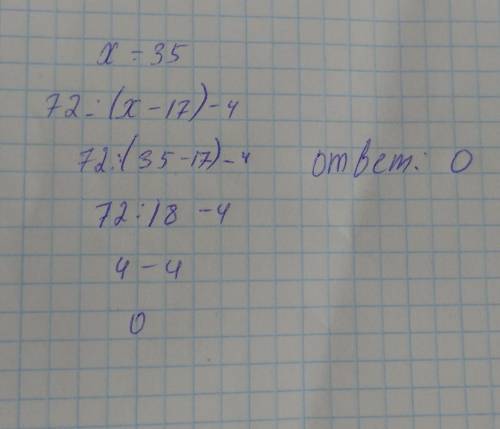 x = 35
72 : (x - 17) - 4
72 : (35 - 17) - 4 ответ: 0
72 : 18 - 4
4 - 4
0